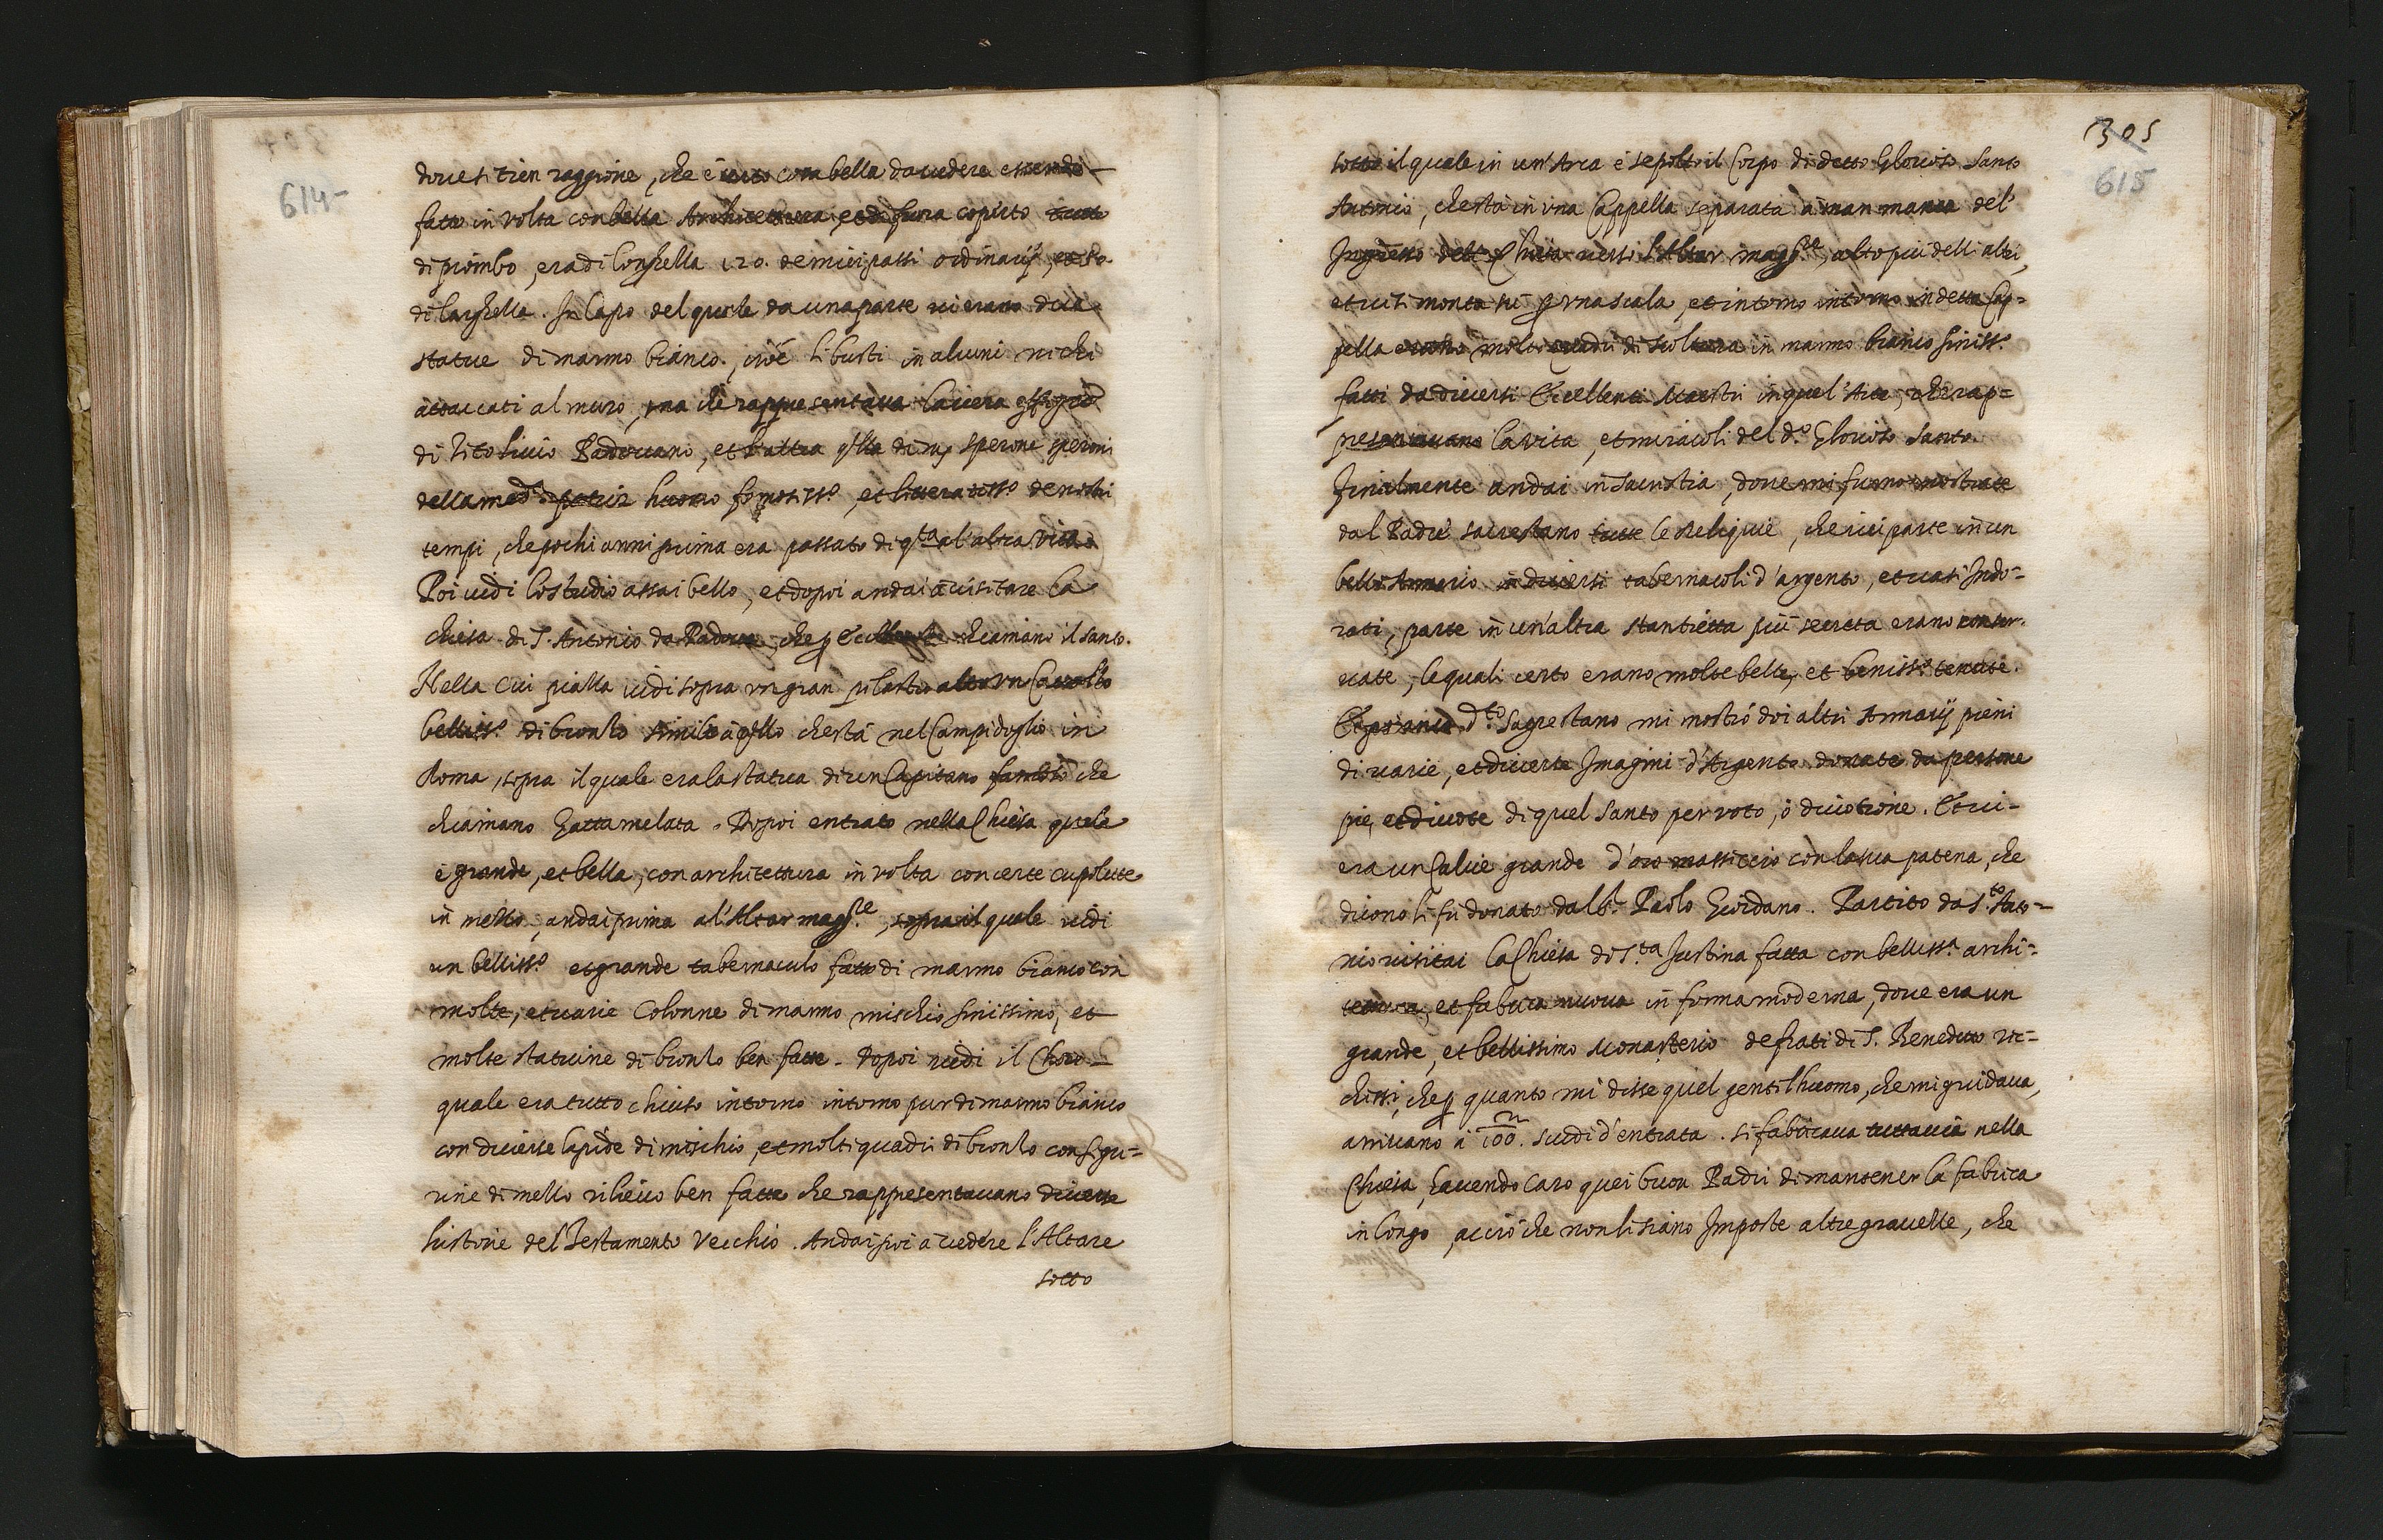 614
doue si tien raggione, che è certo cosa bella da uedere essendo
fatto in volta con bella Architettura, et di fuora coperto tutto
di piombo, era di longhezza 120. de miei passi ordinarij, et 50
di larghezza. In Capo del quale da una parte ui erano due
statue di marmo bianco, cioè li busti in alcuni nichi
attaccati al muro, una che rappresentaua la uera effigie
di Tito Liuio Padouano, et l'altra q.lla di m. Sperone Speroni
della med.a patria huomo famosiss.o, et litteratiss.o de nostri
tempi, che pochi anni prima era passato di q.ta al'altra vita.
Poi uidi lo studio assai bello, et dopoi andai à uisitare la
chiesa di S. Antonio da Padoua, che p Eccellenza chiamano il santo.
Nella cui piazza uidi sopra vn gran pilastro alto vn Cauallo
belliss.o di bronzo simile à q.llo che stà nel Campidoglio in
Roma, sopra il quale era la statua di un Capitano famoso che
chiamano Gattamelata. Dopoi entrato nella Chiesa quale
è grande, et bella, con architettura in volta con certe cupolette
in mezzo, andai prima al'Altar magg.re, sopra il quale uidi
un belliss.o et grande tabernaculo fatto di marmo bianco con
molte, et uarie Colonne di marmo mischio finissimo, et
molte statuine di bronzo ben fatte. Dopoi uidi il Choro
quale era tutto chiuso intorno intorno pur di marmo bianco
con diuerse lapide di mischio, et molti quadri di bronzo con figu=
rine di mezzo rilieuo ben fatte che rappesentauano diuerse
historie del Testamento Vecchio. Andai poi à uedere l'Altare
sotto
305
615
sotto il quale in un'Arca è sepolto il Corpo di detto Glorioso Santo
Antonio, che stà in vna Cappella separata à man manca del'
Ingresso dell Chiesa uerso l'Altar magg.re, alto più delli altri,
et ui si monta sù p vna scala, et intorno intorno in detta Cap=
pella erano molti quadri di scoltura in marmo bianco finiss.o
fatti da diuersi Eccellenti Maestri in quel'Arte, che rap=
presentauano la vita, et miracoli del d.o Glorioso Santo.
Finalmente andai in Sacristia, doue mi furno mostrate
dal Padre sacrestano tutte le Reliquie, che ivi parte in un
bello Armario in diuersi tabernacoli d'argento, et uasi Indo=
rati, parte in un'altra stantietta più secreta erano conser=
uate, le quali certo erano molte belle, et beniss.o tenute.
d.to Sagrestano mi mostrò doi altri Armarij pieni
di uarie, et diuerse Imagini d'Argento donate da persone
pie, et diuote di quel Santo per voto, ò diuotione. Et ui
era un Calice grande d'oro massiccio con la sua patena, che
dicono li fù donato dal S.r Paolo Giordano. Partito da S.to Anto=
nio uisitai la Chiesa di S.ta Justina fatta con belliss.a archi=
tettura, et fabrica nuoua in forma moderna, doue era un
grande, et bellissimo Monasterio de frati di S. Benedetto ric=
chissi, che p quanto mi disse quel gentilhuomo, che mi guidaua,
arriuano à 100. scudi d'entrata. si fabricaua tuttauia nella
Chiesa, hauendo caro quei buon Padri di mantener la fabrica
in longo, acciò che non li siano Imposte altre grauezze, che